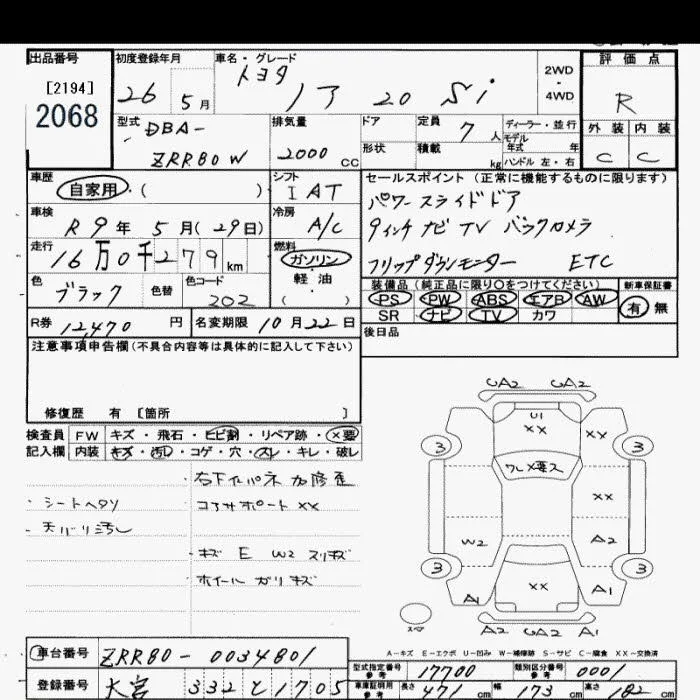 出品番号 初度登録年月 車名・グレード 評価点
[2194] トヨタ 2WD
2068 26 5月 ノア 20 Si ・4WD R
型式 排気量 ドア 定員 ディーラー・並行 外装 内装
DBA- 7人 モデル年式 年
ZRR80W 2000cc 形状 積載 kg ハンドル 左・右 C C
車歴 シフト セールスポイント(正常に機能するものに限ります)
自家用・( ) I AT パワースライドドア
車検 冷房
R9年5月(29日) A/C 9インチナビ TV バックカメラ
走行 燃料
16万0千279km ガンリン フリップダウンモニター ETC
色 色替 色コード 軽・油
ブラック 202 ( )
装備品(純正品に限り○をつけてください) 新車保証書
PS PW ABS エアB AW 有 無
SR ナビ TV カワ
R券 12,470円 名変期限 10月22日 後日品
注意事項申告欄(不具合内容等は具体的に記入して下さい)
修復歴 有 〔箇所 〕
検査員 FW キズ・飛石・ヒビ割・リペア跡・×要
記入欄 内装 キズ・汚レ・コゲ・穴・スレ・キレ・破レ
・シートヘタリ
・天バリ汚レ
コアサポート XX
・キズ E W2 スリキズ
ホイール ガリキズ
UA2 UA2
U1
XX XX
3 3
XX
W2 A2
3 3
XX
A1 A1
スペア
A2 UA2 A1
A-キズ E-エクボ U-凹み W-補修跡 S-サビ C-腐食 XX-交換済
車台番号 ZRR80-0034801
型式指定番号 参考 17700 類別区分番号 参考 0001
登録番号 大宮 332 と 1705
車庫証明用 参考 長さ 471cm 幅 173cm 高さ 182cm